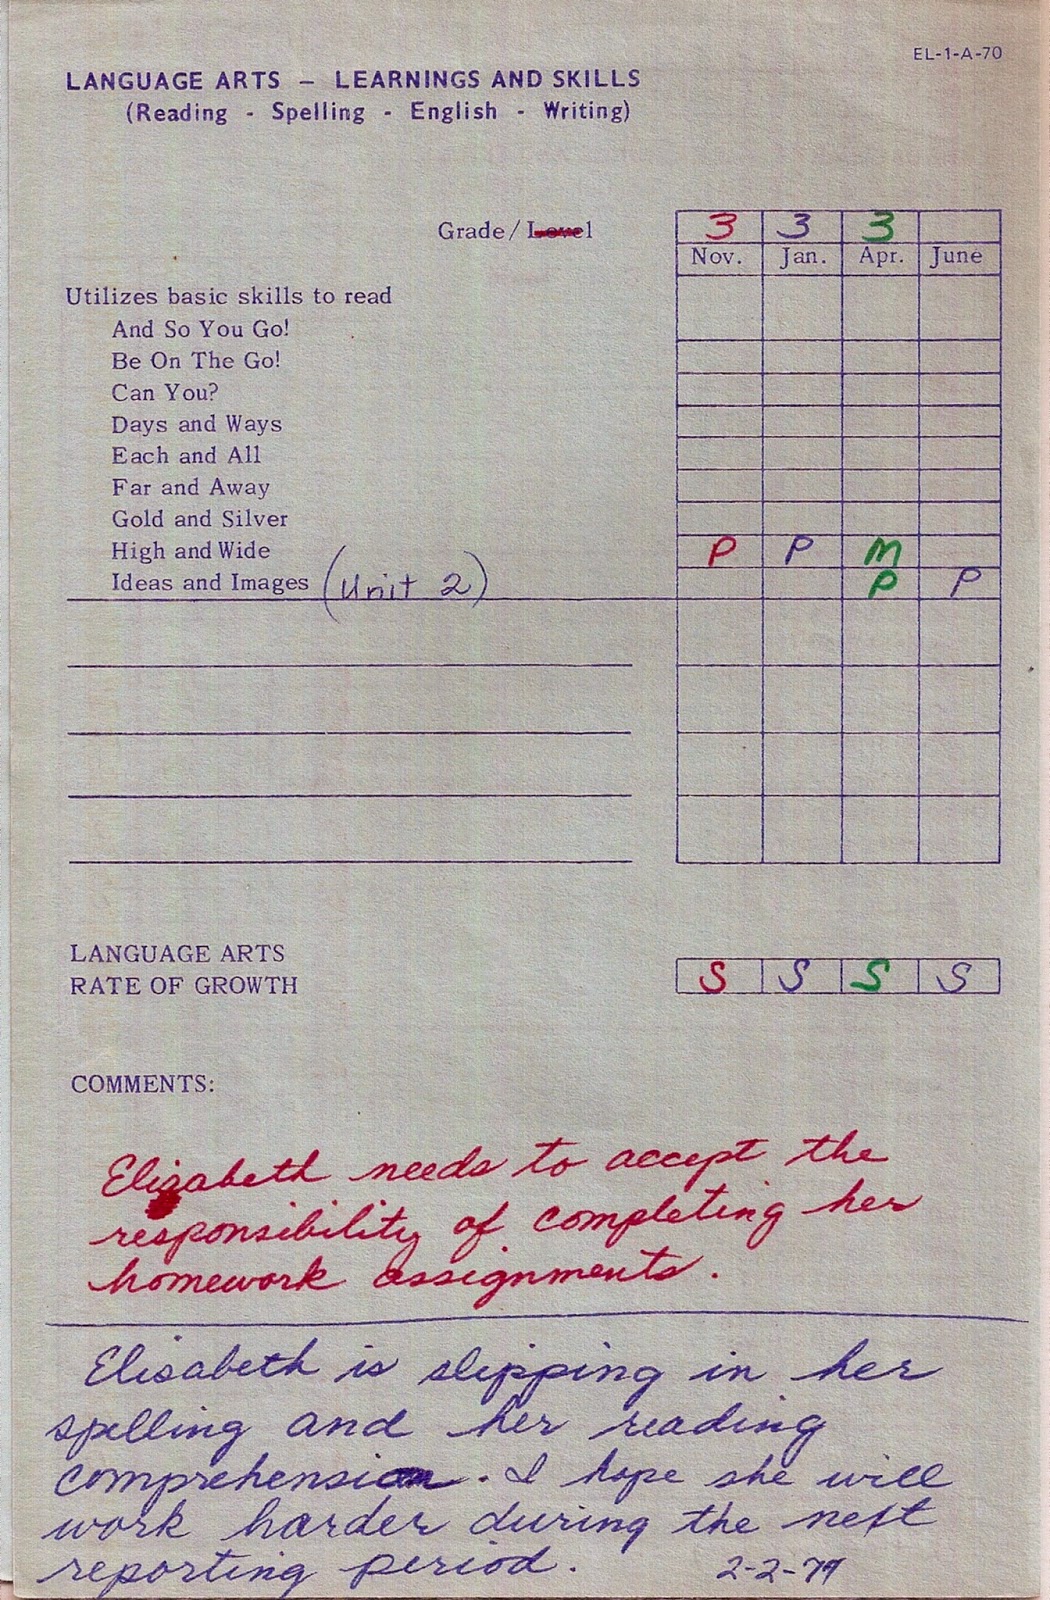 EL-1-A-70
LANGUAGE ARTS – LEARNINGS AND SKILLS
(Reading - Spelling - English - Writing)
Grade/Level 3 3 3
Nov. Jan. Apr. June
Utilizes basic skills to read
And So You Go!
Be On The Go!
Can You?
Days and Ways
Each and All
Far and Away
Gold and Silver
High and Wide P P M
Ideas and Images (Unit 2) P P
LANGUAGE ARTS
RATE OF GROWTH S S S S
COMMENTS:
Elisabeth needs to accept the
responsibility of completing her
homework assignments.
Elisabeth is slipping in her
spelling and her reading
comprehension. I hope she will
work harder during the next
reporting period. 2-2-79